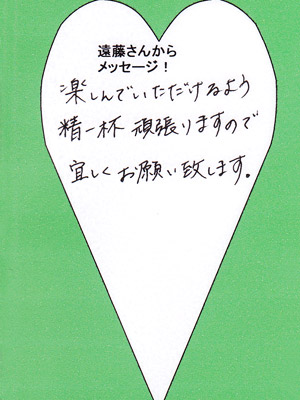 遠藤さんから
メッセージ！
楽しんでいただけるよう
精一杯 頑張りますので
宜しくお願い致します。